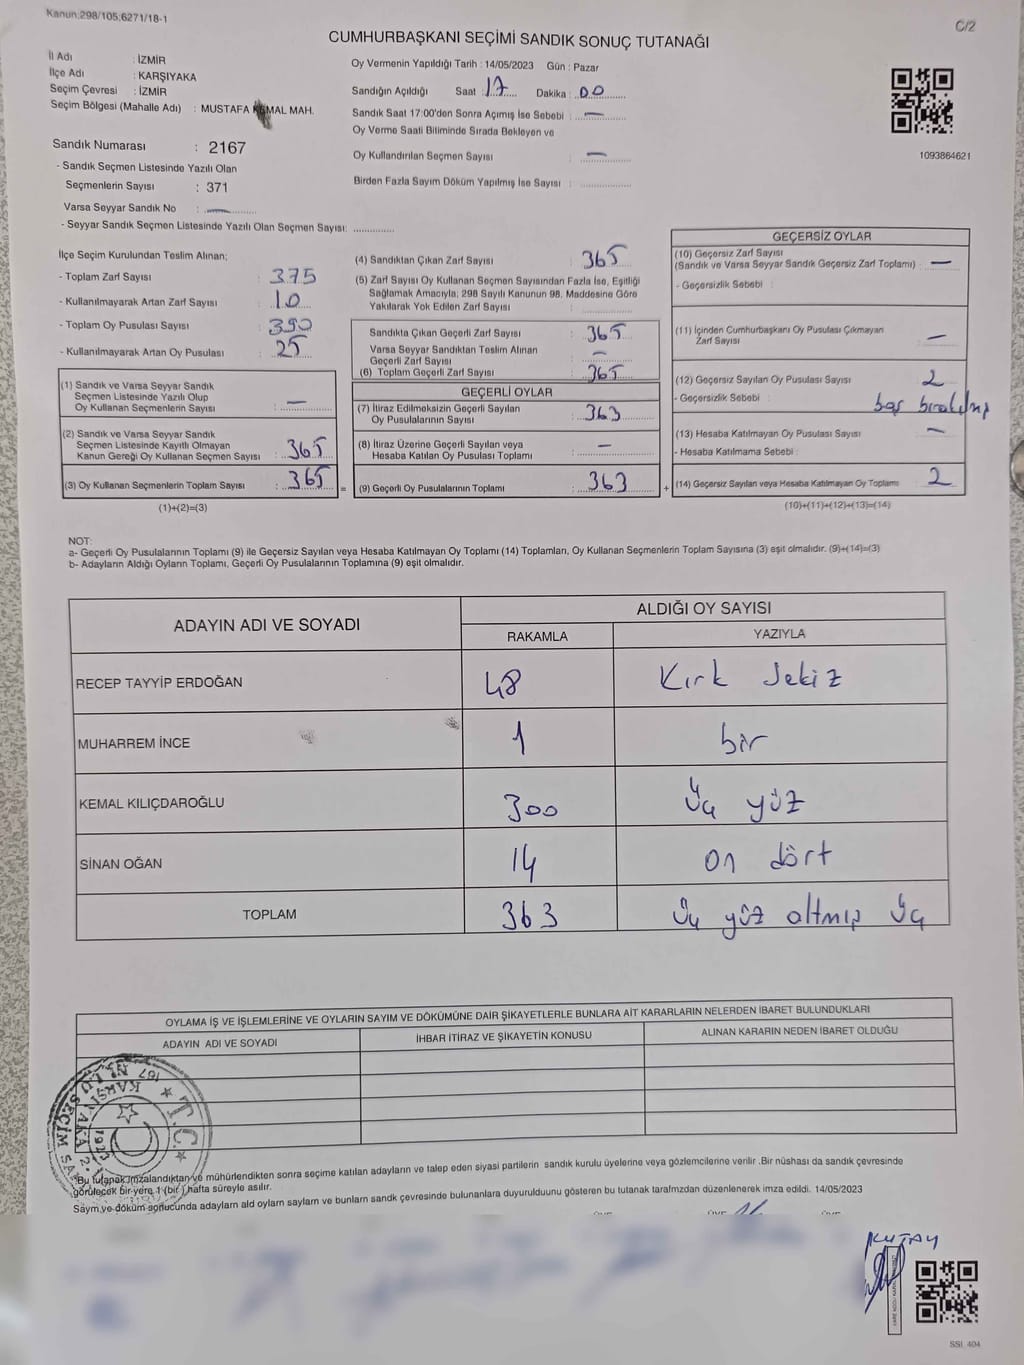 Kanun:298/105;6271/18-1
C/2
CUMHURBAŞKANI SEÇİMİ SANDIK SONUÇ TUTANAĞI
İl Adı : İZMİR
İlçe Adı : KARŞIYAKA
Seçim Çevresi : İZMİR
Seçim Bölgesi (Mahalle Adı) : MUSTAFA KEMAL MAH.
Sandık Numarası : 2167
- Sandık Seçmen Listesinde Yazılı Olan
Seçmenlerin Sayısı : 371
Varsa Seyyar Sandık No : —
- Seyyar Sandık Seçmen Listesinde Yazılı Olan Seçmen Sayısı: ..............
Oy Vermenin Yapıldığı Tarih : 14/05/2023 Gün : Pazar
Sandığın Açıldığı Saat : 17 Dakika : 00
Sandık Saat 17:00'den Sonra Açımış İse Sebebi : —
Oy Verme Saati Bitiminde Sırada Bekleyen ve
Oy Kullandırılan Seçmen Sayısı : —
Birden Fazla Sayım Döküm Yapılmış İse Sayısı : ..............
1093864621
İlçe Seçim Kurulundan Teslim Alınan;
- Toplam Zarf Sayısı : 375
- Kullanılmayarak Artan Zarf Sayısı : 10
- Toplam Oy Pusulası Sayısı : 390
- Kullanılmayarak Artan Oy Pusulası : 25
(1) Sandık ve Varsa Seyyar Sandık
Seçmen Listesinde Yazılı Olup
Oy Kullanan Seçmenlerin Sayısı : —
(2) Sandık ve Varsa Seyyar Sandık
Seçmen Listesinde Kayıtlı Olmayan
Kanun Gereği Oy Kullanan Seçmen Sayısı : 365
(3) Oy Kullanan Seçmenlerin Toplam Sayısı : 365 =
(1)+(2)=(3)
(4) Sandıktan Çıkan Zarf Sayısı : 365
(5) Zarf Sayısı Oy Kullanan Seçmen Sayısından Fazla İse, Eşitliği
Sağlamak Amacıyla; 298 Sayılı Kanunun 98. Maddesine Göre
Yakılarak Yok Edilen Zarf Sayısı : ..............
Sandıkta Çıkan Geçerli Zarf Sayısı : 365
Varsa Seyyar Sandıktan Teslim Alınan
Geçerli Zarf Sayısı : —
(6) Toplam Geçerli Zarf Sayısı : 365
GEÇERLİ OYLAR
(7) İtiraz Edilmeksizin Geçerli Sayılan
Oy Pusulalarının Sayısı : 363
(8) İtiraz Üzerine Geçerli Sayılan veya
Hesaba Katılan Oy Pusulası Toplamı : —
(9) Geçerli Oy Pusulalarının Toplamı : 363 +
GEÇERSİZ OYLAR
(10) Geçersiz Zarf Sayısı
(Sandık ve Varsa Seyyar Sandık Geçersiz Zarf Toplamı) : —
- Geçersizlik Sebebi :
(11) İçinden Cumhurbaşkanı Oy Pusulası Çıkmayan
Zarf Sayısı : —
(12) Geçersiz Sayılan Oy Pusulası Sayısı : 2
- Geçersizlik Sebebi : boş bırakılmış
(13) Hesaba Katılmayan Oy Pusulası Sayısı : —
- Hesaba Katılmama Sebebi :
(14) Geçersiz Sayılan veya Hesaba Katılmayan Oy Toplamı : 2
(10)+(11)+(12)+(13)=(14)
NOT:
a- Geçerli Oy Pusulalarının Toplamı (9) ile Geçersiz Sayılan veya Hesaba Katılmayan Oy Toplamı (14) Toplamları, Oy Kullanan Seçmenlerin Toplam Sayısına (3) eşit olmalıdır. (9)+(14)=(3)
b- Adayların Aldığı Oyların Toplamı, Geçerli Oy Pusulalarının Toplamına (9) eşit olmalıdır.
ADAYIN ADI VE SOYADI
ALDIĞI OY SAYISI
RAKAMLA YAZIYLA
RECEP TAYYİP ERDOĞAN 48 Kırk Sekiz
MUHARREM İNCE 1 bir
KEMAL KILIÇDAROĞLU 300 Üç yüz
SİNAN OĞAN 14 on dört
TOPLAM 363 Üç yüz altmış üç
OYLAMA İŞ VE İŞLEMLERİNE VE OYLARIN SAYIM VE DÖKÜMÜNE DAİR ŞİKAYETLERLE BUNLARA AİT KARARLARIN NELERDEN İBARET BULUNDUKLARI
ADAYIN ADI VE SOYADI İHBAR İTİRAZ VE ŞİKAYETİN KONUSU ALINAN KARARIN NEDEN İBARET OLDUĞU
T.C. KARŞIYAKA
*Bu tutanak imzalandıktan ve mühürlendikten sonra seçime katılan adayların ve talep eden siyasi partilerin sandık kurulu üyelerine veya gözlemcilerine verilir .Bir nüshası da sandık çevresinde
görülecek bir yere 1 (bir ) hafta süreyle asılır.
Sayım ve döküm sonucunda adayların ald oyların sayların ve bunların sandk çevresinde bulunanlara duyurulduunu gösteren bu tutanak tarafmzdan düzenlenerek imza edildi. 14/05/2023
ÜYE ÜYE ÜYE
KUTAY
SSI: 404